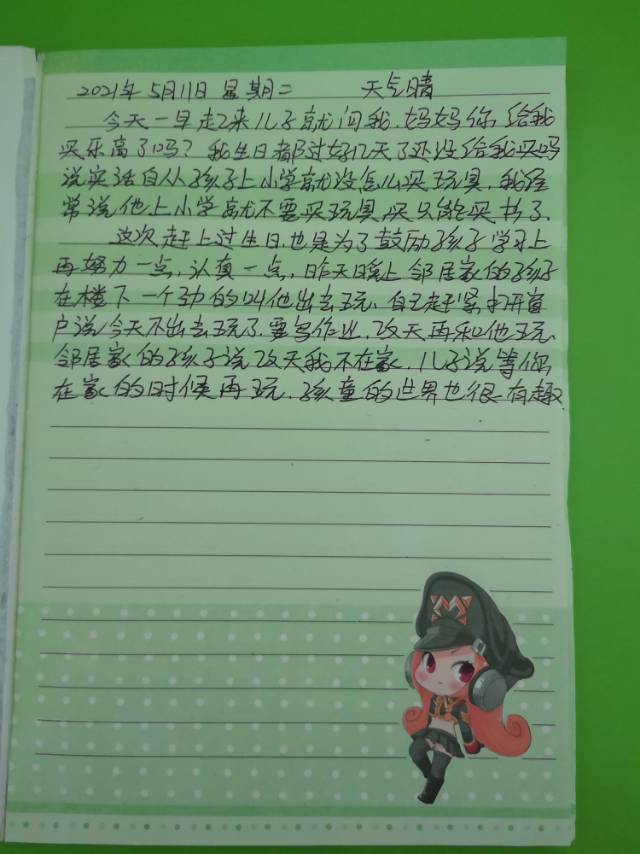 2021年5月11日 星期二 天气晴
今天一早起来儿子就问我.妈妈你给我
买乐高了吗？我生日都过好几天了还没给我买吗
说实话自从孩子上小学就没怎么买玩具.我经
常说他上小学就不要买玩具.只能买书了.
这次赶上过生日.也是为了鼓励孩子学习上
再努力一点,认真一点,昨天晚上邻居家的孩子
在楼下一个劲的叫他出去玩、自己赶紧打开窗
户说今天不出去玩了.要写作业.改天再和他玩、
邻居家的孩子说改天我不在家.儿子说等你
在家的时候再玩.孩童的世界也很有趣
M